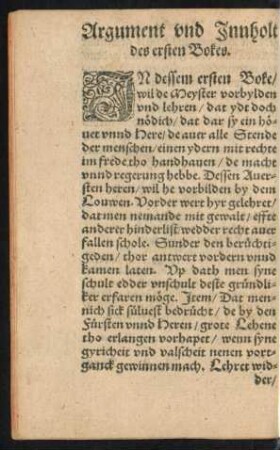 Argument vnd Innholt
des ersten Bokes.
IN dessem ersten Boke/
wil de Meyster vorbylden
vnd lehren/ dat ydt doch
nödich/ dat dar sy ein hö-
uet vnnd Here/ de auer alle Stende
der menschen/ einen ydern mit rechte
im frede tho handhauen/ de macht
vnnd regerung hebbe. Dessen Auer-
sten heren/ wil he vorbilden by dem
Louwen. Vorder wert hyr gelehret/
dat men nemande mit gewalt/ effte
anderer hinderlist/ wedder recht auer
fallen schole. Sunder den berüchti-
geden/ thor antwert vordern vnnd
kamen laten. Vp dath men syne
schult edder vnschult deste gründli-
ker erfaren möge. Jtem/ Dat men
nich sick süluest bedrücht/ de by den
Fürsten vnnd Heren/ grote Lehene
tho erlangen vorhapet/ wenn syne
gyricheit vnd valscheit nenen vort-
ganck gewinnen mach. Lehret wid-
der/